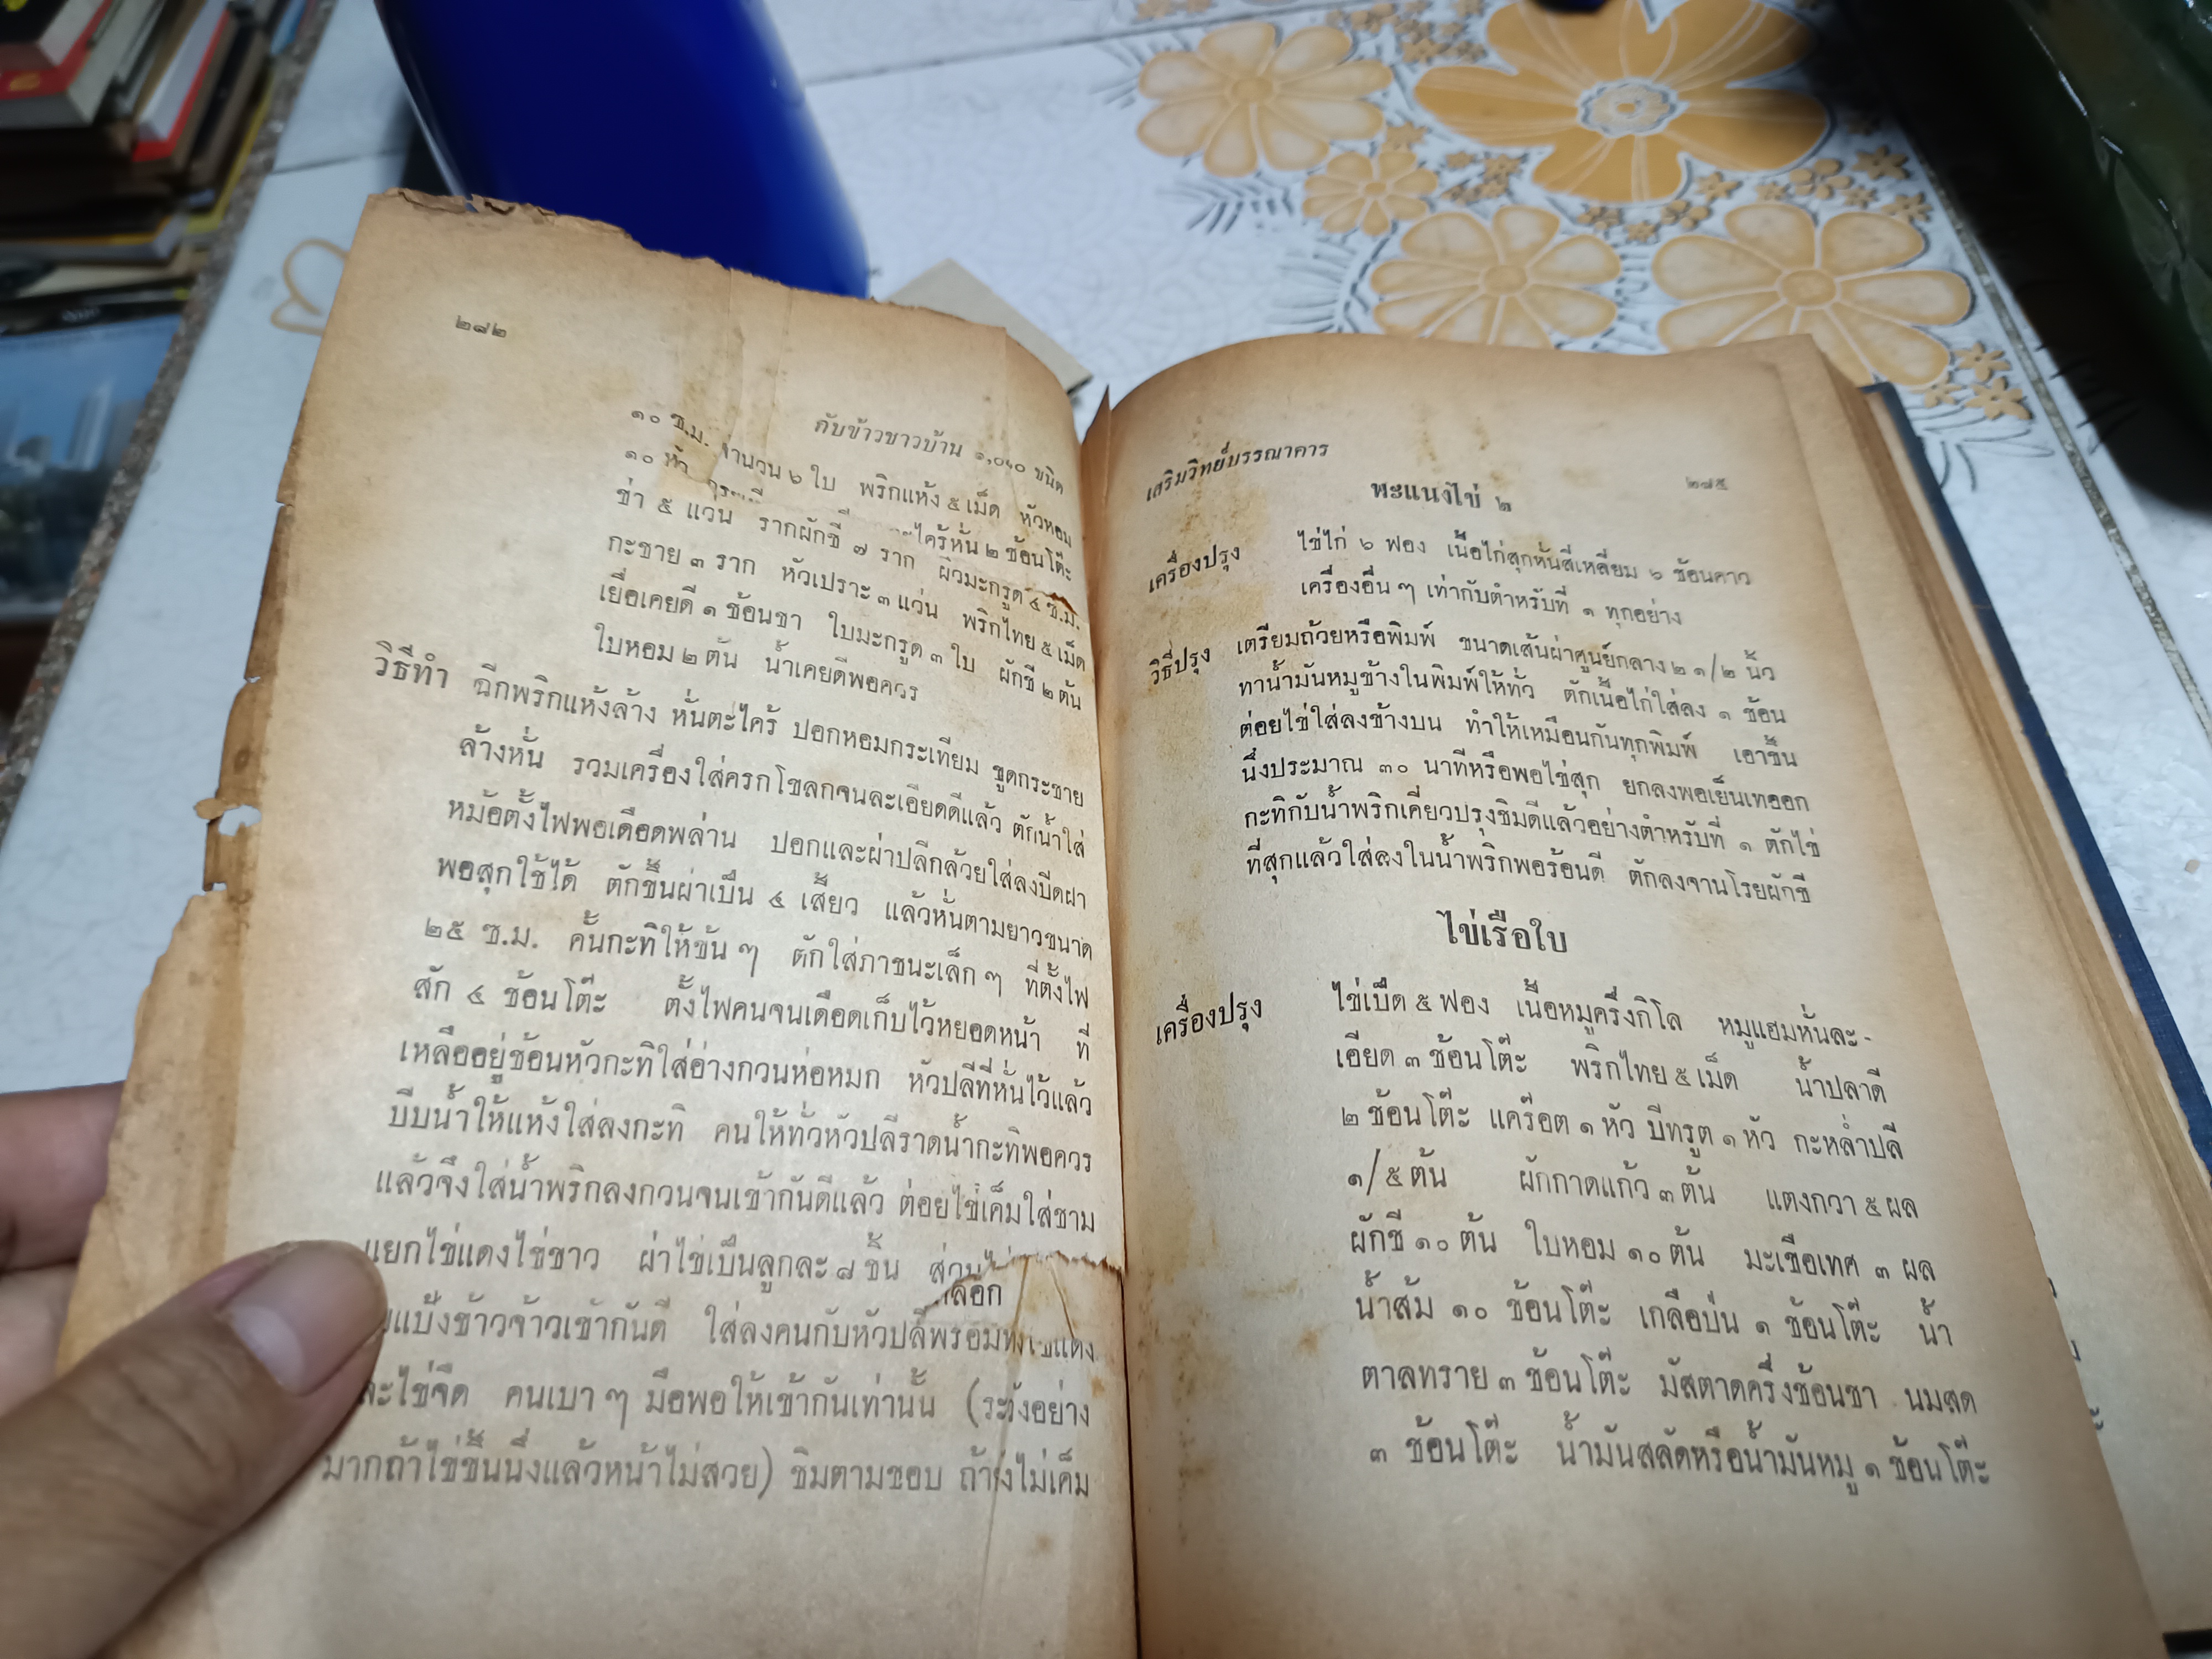 ๒๗๒
กับข้าวชาวบ้าน ๑,๐๔๐ ชนิด
๑๐ ซ.ม. จำนวน ๖ ใบ พริกแห้ง ๕ เม็ด หัวหอม
๑๐ หัว ไคร้หั่น ๒ ช้อนโต๊ะ
ข่า ๕ แวน รากผักชี ๗ ราก ผิวมะกรูด ๔ ซ.ม.
กะชาย ๓ ราก หัวเปราะ ๓ แว่น พริกไทย ๕ เม็ด
เยื่อเคยดี ๑ ช้อนชา ใบมะกรูด ๓ ใบ ผักชี ๒ ต้น
ใบหอม ๒ ต้น น้ำเคยดีพอควร
วิธีทำ ฉีกพริกแห้งล้าง หั่นตะไคร้ ปอกหอมกระเทียม ขูดกระชาย
ล้างหั่น รวมเครื่องใส่ครกโขลกจนละเอียดดีแล้ว ตักน้ำใส่
หม้อตั้งไฟพอเดือดพล่าน ปอกและผ่าปลีกล้วยใส่ลงปีดฝา
พอสุกใช้ได้ ตักขึ้นผ่าเป็น ๔ เสี้ยว แล้วหั่นตามยาวขนาด
๒๕ ซ.ม. คั้นกะทิให้ข้น ๆ ตักใส่ภาชนะเล็ก ๆ ที่ตั้งไฟ
สัก ๔ ช้อนโต๊ะ ตั้งไฟคนจนเดือดเก็บไว้หยอดหน้า ที่
เหลืออยู่ช้อนหัวกะทิใส่อ่างกวนห่อหมก หัวปลีที่หั่นไว้แล้ว
บีบน้ำให้แห้งใส่ลงกะทิ คนให้ทั่วหัวปลีราดน้ำกะทิพอควร
แล้วจึงใส่น้ำพริกลงกวนจนเข้ากันดีแล้ว ต่อยไข่เค็มใส่ชาม
แยกไข่แดงไข่ขาว ผ่าไข่เป็นลูกละ ๘ ชิ้น ส่วนไข่
แป้งข้าวจ้าวเข้ากันดี ใส่ลงคนกับหัวปลีพร้อมทั้งไข่แดง
ละไข่จืด คนเบา ๆ มือพอให้เข้ากันเท่านั้น (ระวังอย่าง
มากถ้าไข่ขึ้นนึ่งแล้วหน้าไม่สวย) ชิมตามชอบ ถ้ายังไม่เค็ม
เสริมวิทย์บรรณาคาร
๒๗๕
พะแนงไข่ ๒
เครื่องปรุง ไข่ไก่ ๖ ฟอง เนื้อไก่สุกหั่นสี่เหลี่ยม ๖ ช้อนคาว
เครื่องอื่น ๆ เท่ากับตำหรับที่ ๑ ทุกอย่าง
วิธีปรุง เตรียมถ้วยหรือพิมพ์ ขนาดเส้นผ่าศูนย์กลาง ๒ ๑/๒ นิ้ว
ทาน้ำมันหมูข้างในพิมพ์ให้ทั่ว ตักเนื้อไก่ใส่ลง ๑ ช้อน
ต่อยไข่ใส่ลงข้างบน ทำให้เหมือนกันทุกพิมพ์ เอาขึ้น
นึ่งประมาณ ๓๐ นาทีหรือพอไข่สุก ยกลงพอเย็นเทออก
กะทิกับน้ำพริกเคี่ยวปรุงชิมดีแล้วอย่างตำหรับที่ ๑ ตักไข่
ที่สุกแล้วใส่ลงในน้ำพริกพอร้อนดี ตักลงจานโรยผักชี
ไข่เรือใบ
เครื่องปรุง ไข่เป็ด ๕ ฟอง เนื้อหมูครึ่งกิโล หมูแฮมหั่นละ-
เอียด ๓ ช้อนโต๊ะ พริกไทย ๕ เม็ด น้ำปลาดี
๒ ช้อนโต๊ะ แคร๊อต ๑ หัว บีทรูต ๑ หัว กะหล่ำปลี
๑/๕ ต้น ผักกาดแก้ว ๓ ต้น แตงกวา ๕ ผล
ผักชี ๑๐ ต้น ใบหอม ๑๐ ต้น มะเขือเทศ ๓ ผล
น้ำส้ม ๑๐ ช้อนโต๊ะ เกลือป่น ๑ ช้อนโต๊ะ น้ำ
ตาลทราย ๓ ช้อนโต๊ะ มัสตาดครึ่งช้อนชา นมสด
๓ ช้อนโต๊ะ น้ำมันสลัดหรือน้ำมันหมู ๑ ช้อนโต๊ะ